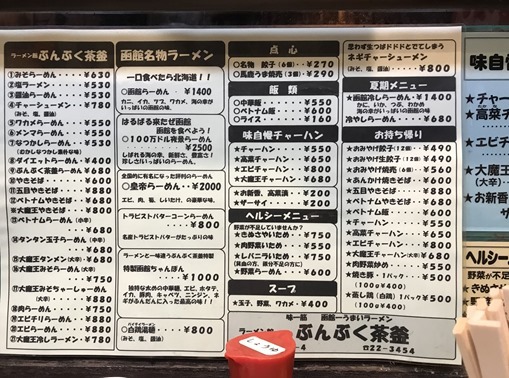 ラーメン館 ぶんぶく茶釜
①みそらーめん……￥630
②塩ラーメン……￥530
③醤油らーめん……￥530
④チャーシューメン……￥780
(みそ、塩、醤油)
⑤ワカメらーめん……￥550
⑥メンマらーめん……￥550
⑦なつかしらーめん……￥530
⑧ダイエットらーめん……￥400
⑨ぶんぶく茶釜らーめん￥680
⑩やきそば……￥600
⑪五目やきそば……￥880
⑫ベトナムやきそば……￥680
※大魔王やきそば……￥680
⑬ベトナムらーめん(中辛)
￥680
⑭タンタン玉子らーめん(中辛)
￥680
⑮大魔王タンメン(大辛)￥680
⑯大魔王みそらーめん(大辛)￥750
⑰大魔王みそちゃーしゅーめん
(大辛)￥880
⑱肉らーめん……￥750
⑲エビチリらーめん……￥880
⑳エビらーめん……￥880
㉑大魔王冷しラーメン……￥780
函館名物ラーメン
一口食べたら北海道！！
○函館らーめん……￥1400
カニ、イカ、ツブ、ワカメ、海の幸が
いっぱいの函館の味
はるばる来たぜ函館
函館を食べよう！
○１００万ドル夜景らーめん
￥2500
○皇帝らーめん……￥2000
エビ、肉、筍、しいたけ、の豪華な味。
トラピストバターコーンらーめん
￥800
名産トラピストバターがたっぷりの味
ラーメンと一味違うぶんぶく茶釜特製
特製函館ちゃんぽん
￥1000
独特な太めの中華麺、エビ、ホタテ、
イカ、豚肉、キャベツ、ニンジン、ネ
ギがふんだんに入った最高の味！
○白鶏湯麺……￥800
(みそ、塩、醤油)
点心
○名物 餃子(6個)……￥270
○馬鹿うま焼売(3個)……￥290
飯類
○中華飯……￥550
○ベトナム飯……￥600
○ライス……￥160
味自慢チャーハン
★チャーハン……￥550
★高菜チャーハン……￥650
★エビチャーハン……￥800
★大魔王チャーハン……￥680
★お新香、高菜漬……￥200
★ザーサイ……￥200
ヘルシーメニュー
野菜が不足していませんか？
★きぬさやいため……￥750
★肉野菜いため……￥550
★レバニラいため……￥750
★野菜らーめん……￥600
スープ
★玉子、野菜、ワカメ……￥400
思わず生つばドドドとでてしまう
ネギチャーシューメン
(みそ、塩、醤油)……￥800
夏期メニュー
★函館冷しらーめん……￥1400
かに、いか、つぶ、わかめ
海の幸がいっぱい函館の味
冷やしらーめん……￥680
お持ち帰り
★おおみやげ餃子(12個)……￥490
★おおみやげ生餃子(12個)……￥490
★おおみやげ焼売(6個)……￥560
★あんかけ焼そば……￥650
★五目やきそば……￥880
★ベトナムやきそば……￥680
★ベトナム飯……￥600
★チャーハン……￥550
★高菜チャーハン……￥650
★エビチャーハン……￥800
★大魔王チャーハン……￥680
★大魔王焼そば(大辛)……￥680
★肉野菜いため……￥550
★レバニラいため……￥750
★焼き豚(1パック)……￥500
(100g￥400)
★蒸し鶏(自鶏)1パック￥500
(100g￥400)
味一筋 函館一うまいラーメン
ラーメン館 ぶんぶく茶釜
☎22-3454
しょうゆ
味自慢
★チャー
★高菜チ
★エビチ
★大魔王
(大辛)
★お新香
ヘルシー
野菜が不足